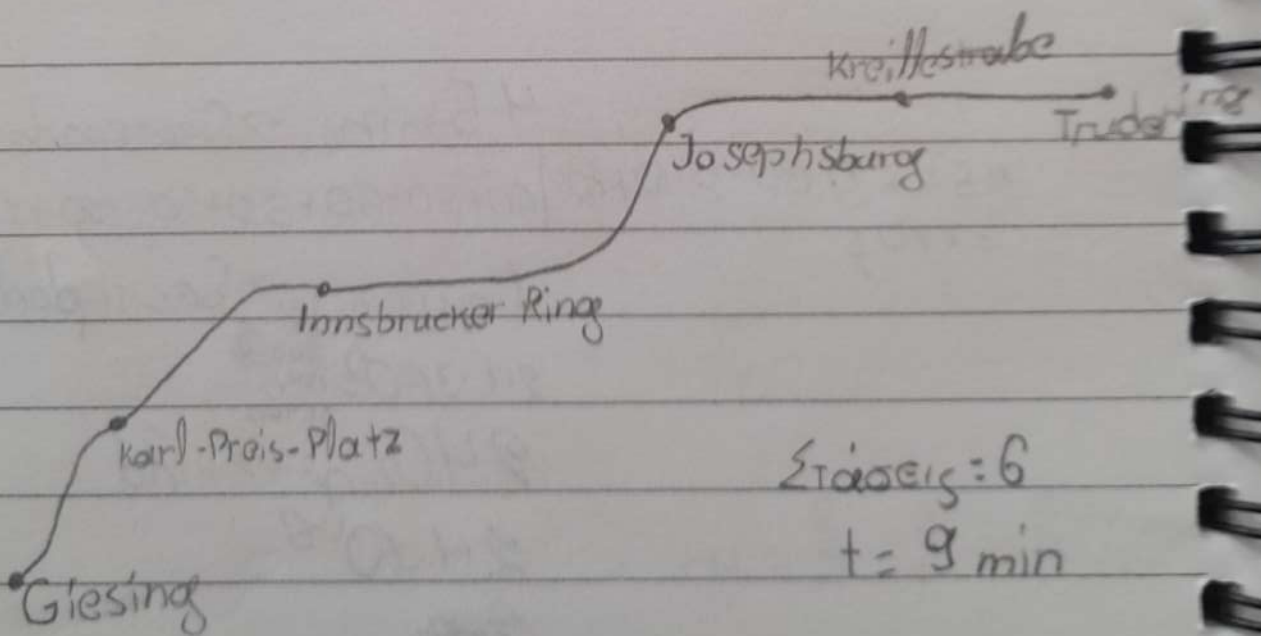 Kreillestraße
Trudering
Josephsburg
Innsbrucker Ring
Karl-Preis-Platz
Στάσεις = 6
t = 9 min
Giesing